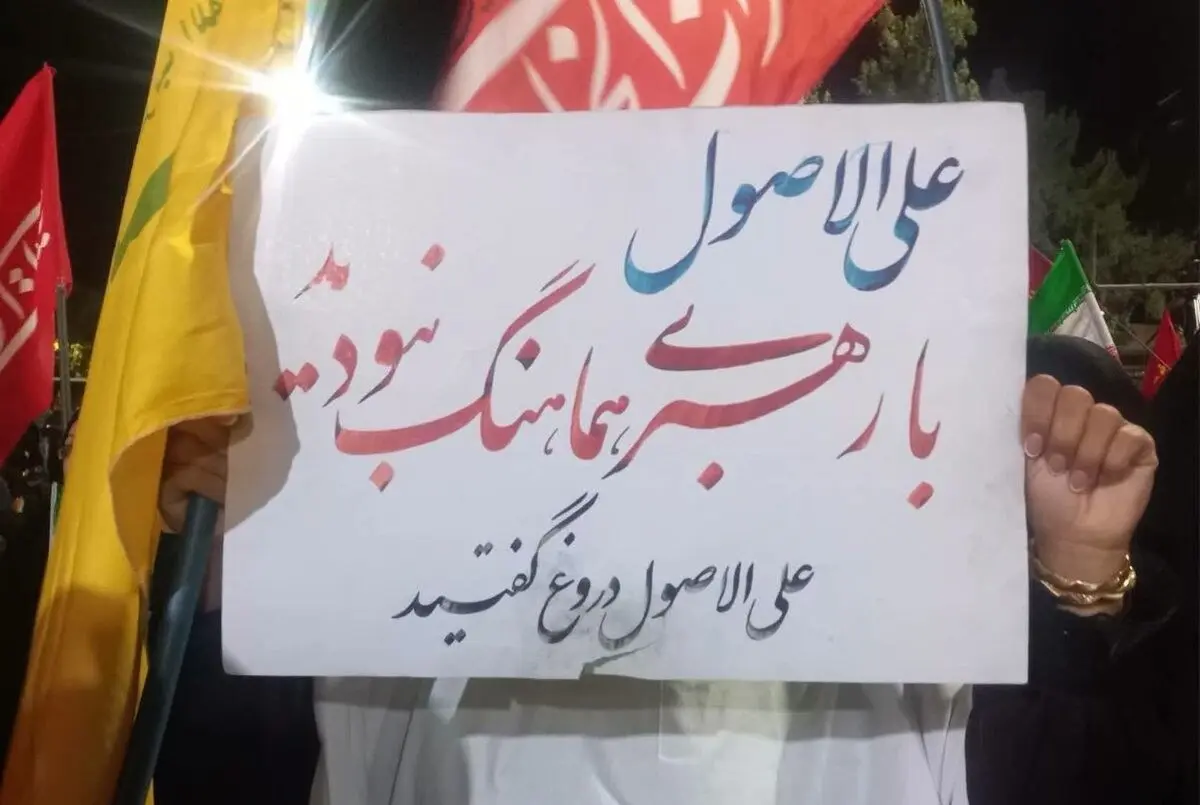 علی الاصول
با رهبری هماهنگ نبودید
علی الاصول دروغ گفتید